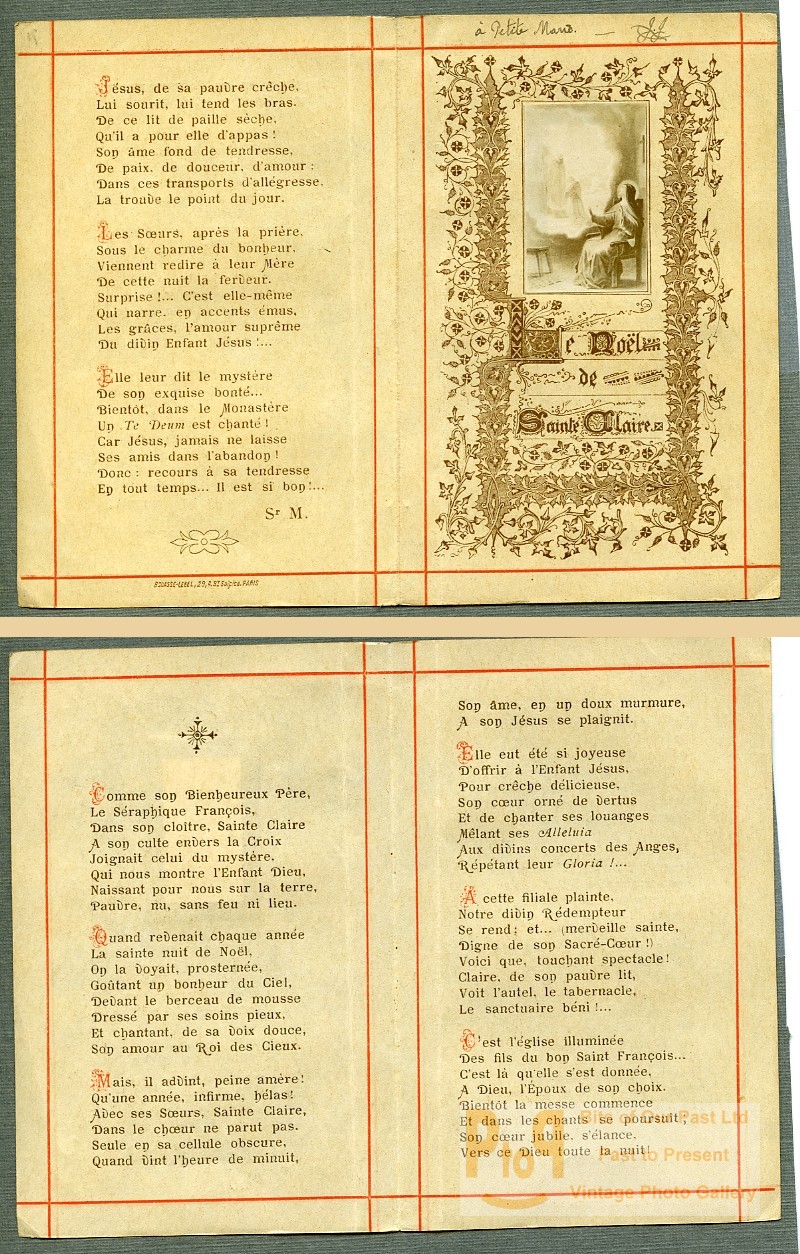 Jésus, de sa pauvre crèche,
Lui sourit, lui tend les bras.
De ce lit de paille sèche,
Qu'il a pour elle d'appas !
Son âme fond de tendresse,
De paix, de douceur, d'amour :
Dans ces transports d'allégresse,
La trouve le point du jour.
Les Sœurs, après la prière,
Sous le charme du bonheur,
Viennent redire à leur Mère
De cette nuit la ferveur.
Surprise !... C'est elle-même
Qui narre, en accents émus,
Les grâces, l'amour suprême
Du divin Enfant Jésus !...
Elle leur dit le mystère
De son exquise bonté...
Bientôt, dans le Monastère
Un Te Deum est chanté !
Car Jésus, jamais ne laisse
Ses amis dans l'abandon !
Donc : recours à sa tendresse
En tout temps... Il est si bon !...
Sr M.
BOUASSE-LEBEL, 29, R. St Sulpice, PARIS
à Petite Marie. —
Le Noël
de
Sainte Claire
Comme son Bienheureux Père,
Le Séraphique François,
Dans son cloître, Sainte Claire
A son culte envers la Croix
Joignait celui du mystère,
Qui nous montre l'Enfant Dieu,
Naissant pour nous sur la terre,
Pauvre, nu, sans feu ni lieu.
Quand revenait chaque année
La sainte nuit de Noël,
On la voyait, prosternée,
Goûtant un bonheur du Ciel,
Devant le berceau de mousse
Dressé par ses soins pieux,
Et chantant, de sa voix douce,
Son amour au Roi des Cieux.
Mais, il advint, peine amère !
Qu'une année, infirme, hélas !
Avec ses Sœurs, Sainte Claire,
Dans le chœur ne parut pas.
Seule en sa cellule obscure,
Quand vint l'heure de minuit,
Son âme, en un doux murmure,
A son Jésus se plaignit.
Elle eut été si joyeuse
D'offrir à l'Enfant Jésus,
Pour crèche délicieuse,
Son cœur orné de vertus
Et de chanter ses louanges
Mêlant ses Alleluia
Aux divins concerts des Anges,
Répétant leur Gloria !...
A cette filiale plainte,
Notre divin Rédempteur
Se rend ; et... (merveille sainte,
Digne de son Sacré-Cœur !)
Voici que, touchant spectacle !
Claire, de son pauvre lit,
Voit l'autel, le tabernacle,
Le sanctuaire béni !...
C'est l'église illuminée
Des fils du bon Saint François...
C'est là qu'elle s'est donnée,
A Dieu, l'Époux de son choix.
Bientôt la messe commence
Et dans les chants se poursuit ;
Son cœur jubile, s'élance,
Vers ce Dieu toute la nuit !
Bits of Our Past Ltd
P to P
Past to Present
Vintage Photo Gallery